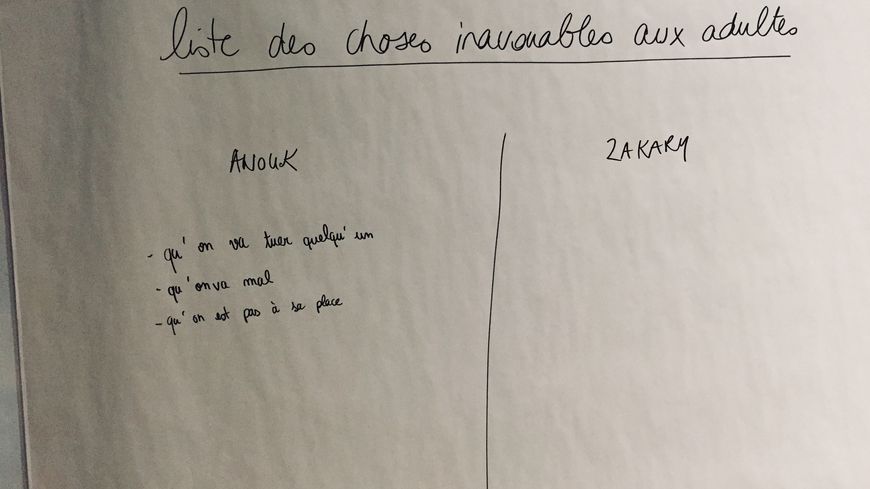 liste des choses inavouables aux adultes
ANOUK
ZAKARY
- qu'on va tuer quelqu'un
- qu'on va mal
- qu'on est pas à sa place